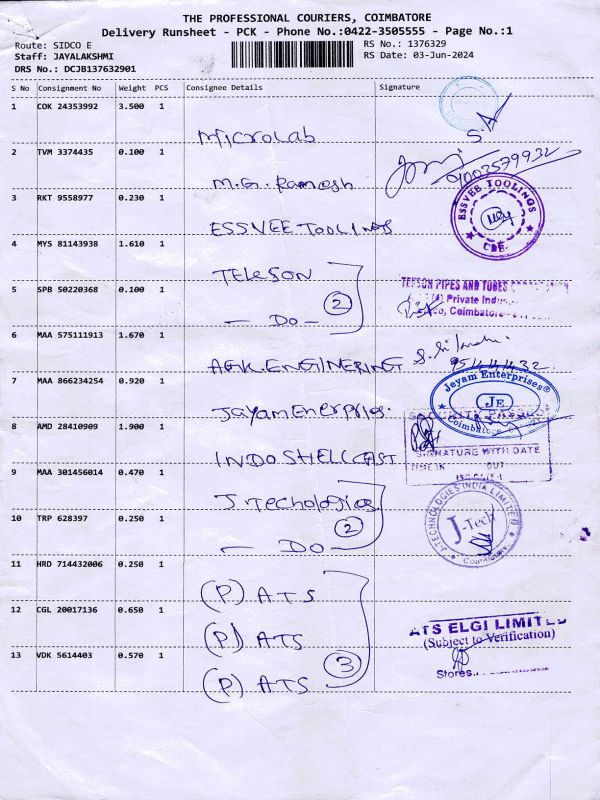 THE PROFESSIONAL COURIERS, COIMBATORE
Delivery Runsheet - PCK - Phone No.:0422-3505555 - Page No.:1
Route: SIDCO E
RS No.: 1376329
Staff: JAYALAKSHMI
RS Date: 03-Jun-2024
DRS No.: DCJB137632901
S No Consignment No Weight PCS Consignee Details Signature
1 COK 24353992 3.500 1
Microlab
2 TVM 3374435 0.100 1
M.G. Ramesh
3 RKT 9558977 0.230 1
ESSVEE TOOLINGS
ESSVEE TOOLINGS
CBE.
4 MYS 81143938 1.610 1
TELESON
5 SPB 50220368 0.100 1
— DO — 2
PIPES AND TUBES
Private
Coimbatore
6 MAA 575111913 1.670 1
AGK. ENGINERING
7 MAA 866234254 0.920 1
Jayam Enerpries.
Jayam Enterprises®
JE
8 AMD 28410909 1.900 1
INDO SHELL CAST
SIGNATURE WITH DATE
OUT
9 MAA 301456014 0.470 1
J. Techologies
J-TECHNOLOGIES INDIA LIMITED
J-Tech
Coimbatore
10 TRP 628397 0.250 1
— DO — 2
11 HRD 714432006 0.250 1
(P) ATS
12 CGL 20017136 0.650 1
(P) ATS
ATS ELGI LIMITED
(Subject to Verification)
13 VDK 5614403 0.570 1
(P) ATS 3
Stores